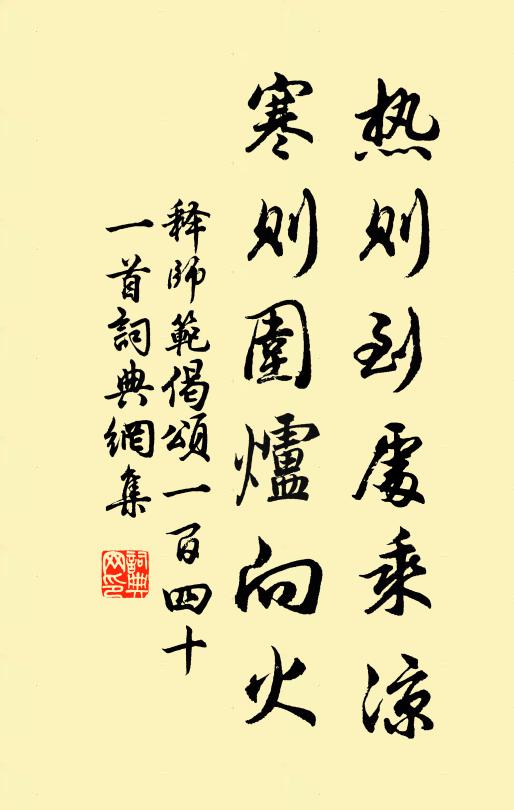 热则到處乘凉
寒则圍爐向火
释師範偈頌一百四十
一首詞典網集
詞典网印